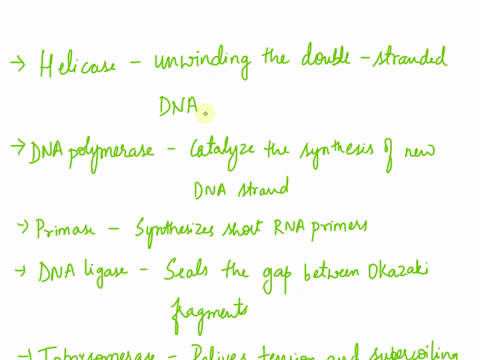 → Helicase - unwinding the double-stranded
DNA
→ DNA polymerase - Catalyze the synthesis of new
DNA strand
→ Primase - Synthesizes short RNA primers
→ DNA ligase - Seals the gap between Okazaki
fragments
→ - Relives tension and supercoiling